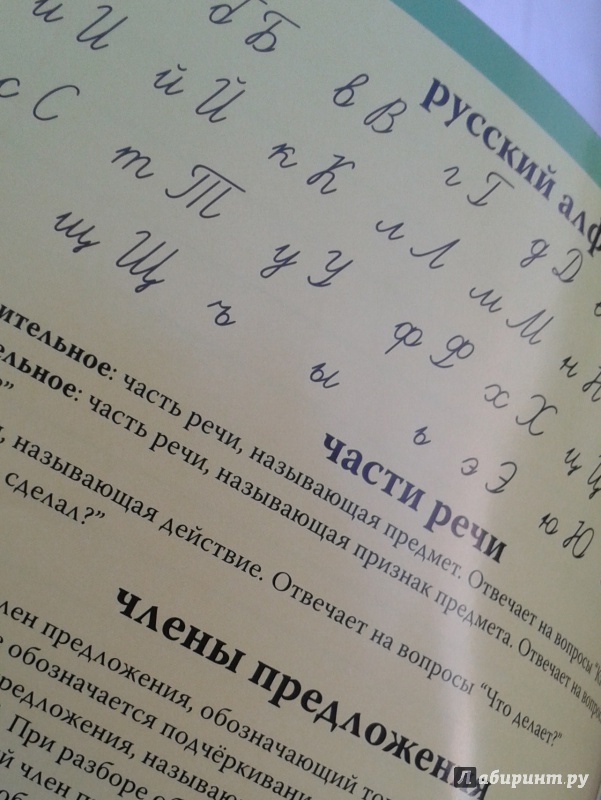 русский алф
б Б в В г Г д Д
и И й Й к К л Л м М н Н
с С т Т у У ф Ф х Х ц Ц
щ Щ ъ ы ь э Э ю Ю
части речи
ительное: часть речи, называющая предмет. Отвечает на вопросы “К
ельное: часть речи, называющая признак предмета. Отвечает на вопрос
?”
, называющая действие. Отвечает на вопросы “Что делает?”
сделал?”
члены предложения
лен предложения, обозначающий
е обозначается подчёркивани
редложения, называю
. При разборе
й член
Лабиринт.ру